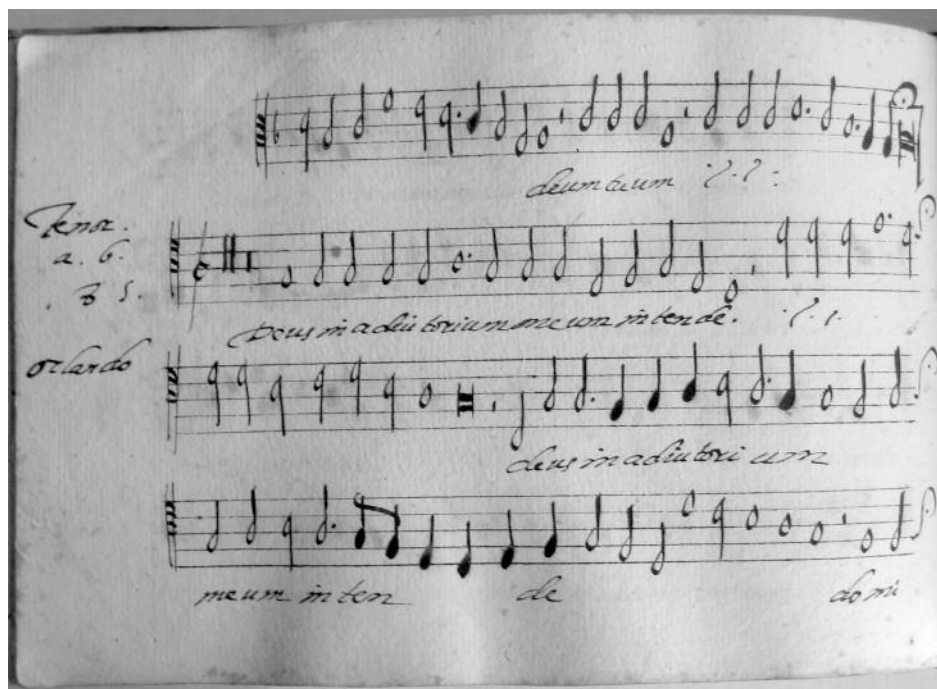 deum tuum
Tenor.
a. 6.
Deus in adiutorium meum intende.
orlando
deus in adiutori um
meum in ten de domi